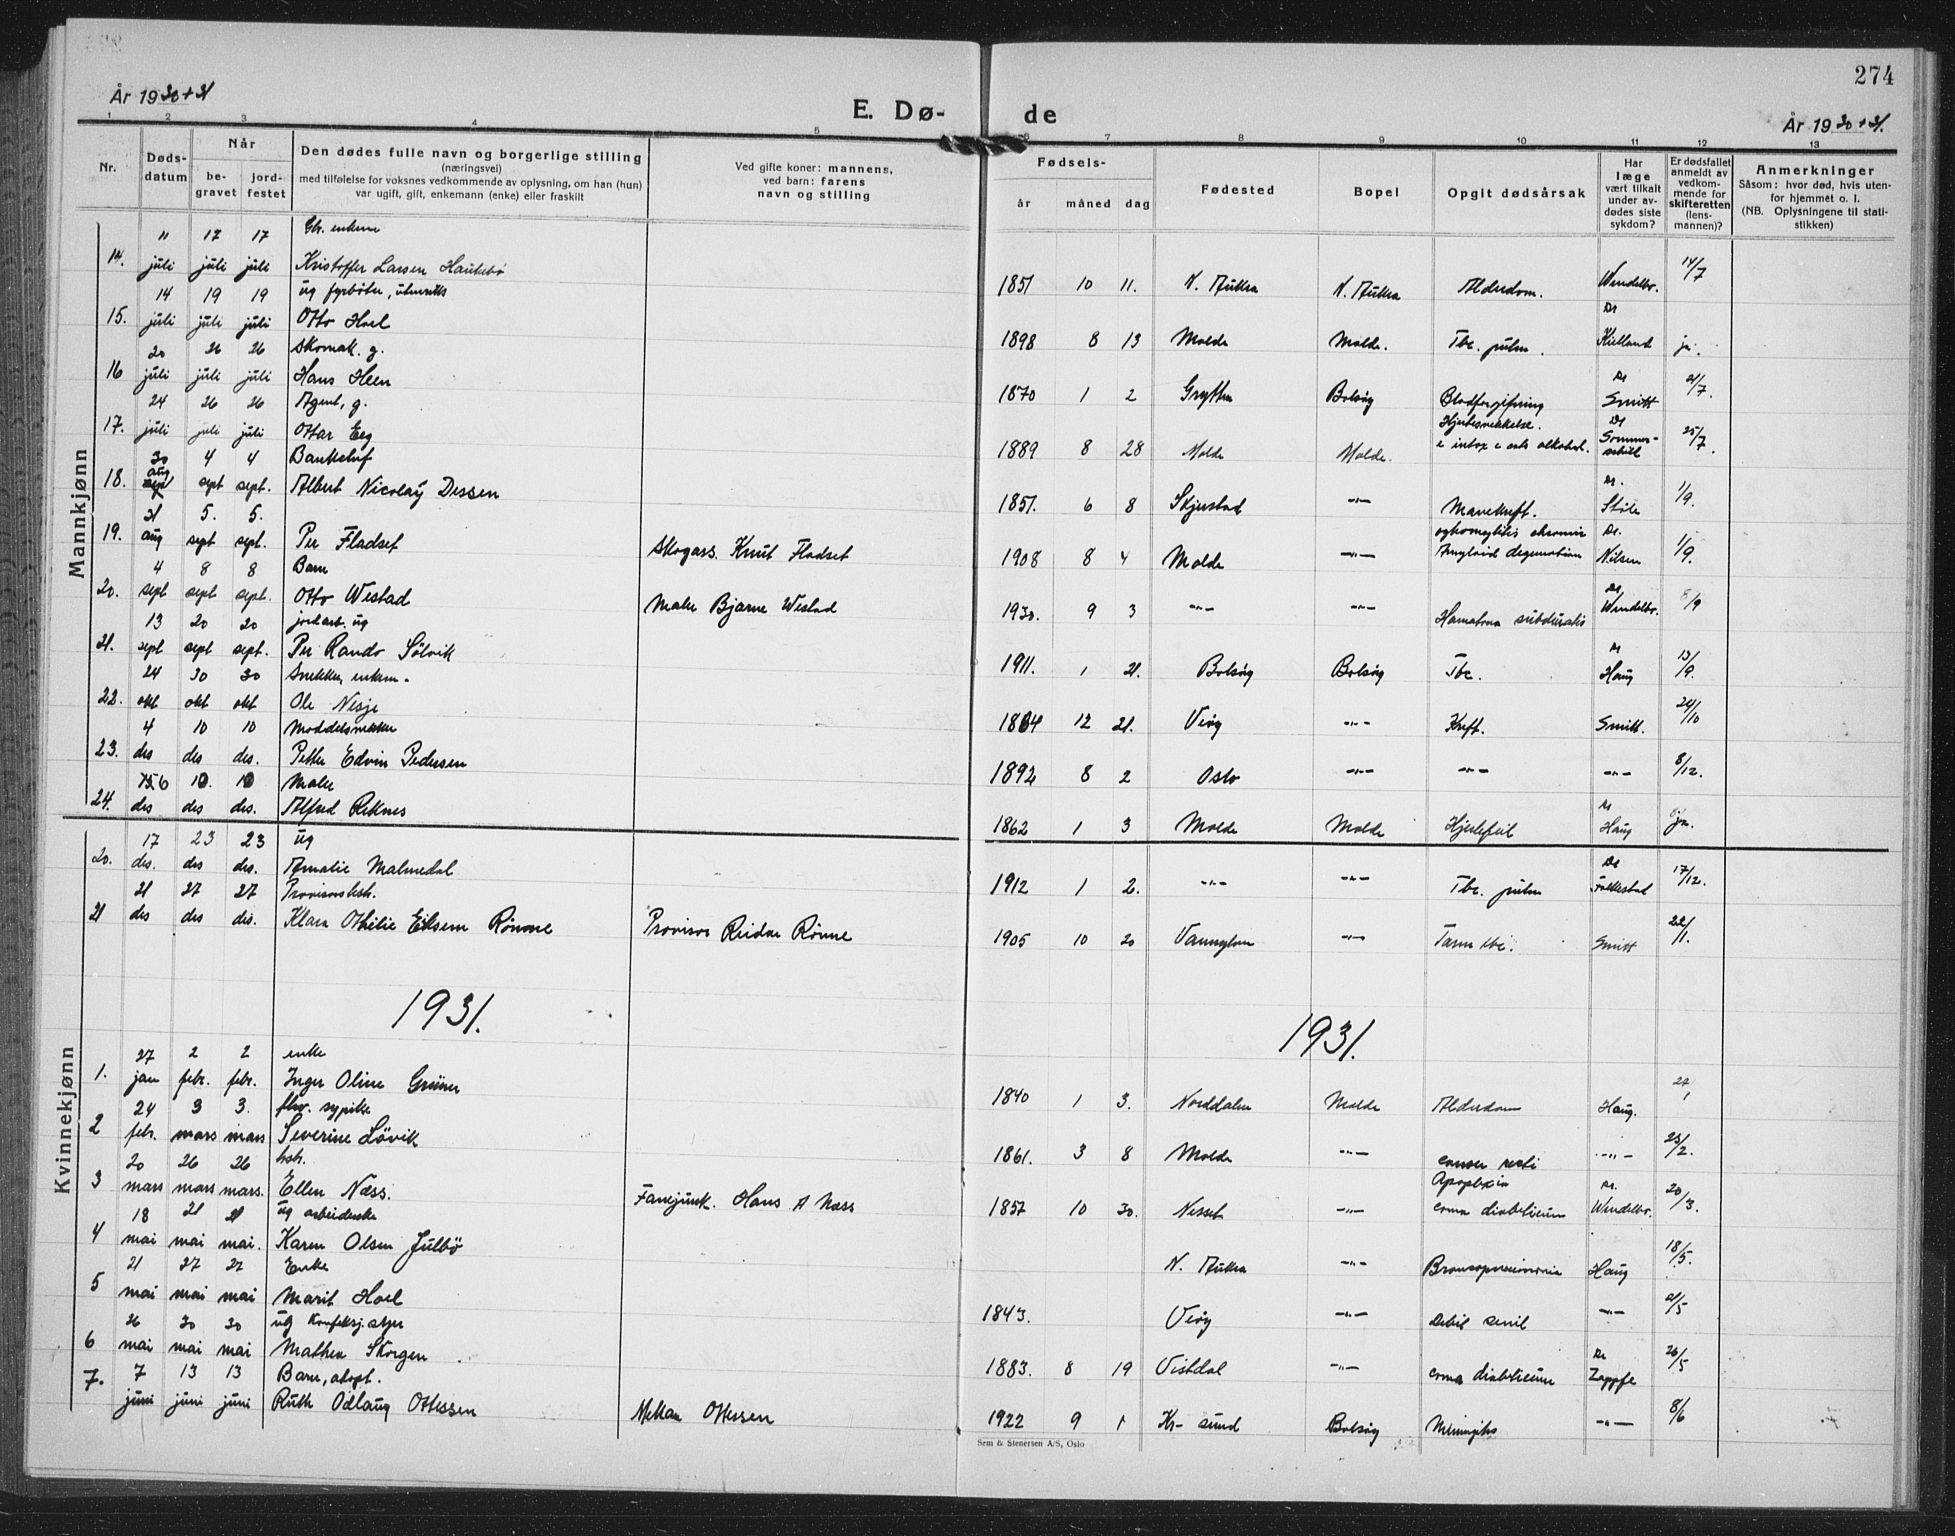 274
År 1930+31
E. Dø-
de
År 1930+31.
1 2 3 4 5 6 7 8 9 10 11 12 13
Nr.
Døds-
datum
Når
be-
gravet
jord-
festet
Den dødes fulle navn og borgerlige stilling
(næringsvei)
med tilføielse for voksnes vedkommende av oplysning, om han (hun)
var ugift, gift, enkemann (enke) eller fraskilt
Ved gifte koner: mannens,
ved barn: farens
navn og stilling
Fødsels-
år måned dag
Fødested
Bopel
Opgit dødsårsak
Har
læge
vært tilkalt
under av-
dødes siste
sykdom?
Er dødsfallet
anmeldt av
vedkom-
mende for
skifteretten
(lens-
mannen)?
Anmerkninger
Såsom: hvor død, hvis uten-
for hjemmet o. l.
(NB. Oplysningene til stati-
stikken)
Mannkjønn
11 17 17 Gbr. enkem
14. juli juli juli Kristoffer Larsen Haukebø 1851 10 11. N. Aukra N. Aukra Alderdom. Wendelbo. 14/7
14 19 19 ug fyrbøter, utenriks
15. juli juli juli Otto Hoel 1898 8 13 Molde Molde. Tbc. pulm. Dr Kielland ja.
20 26 26 Skomak. g.
16 juli juli juli Hans Heen 1870 1 2 Grytten Bolsøy Blodforgiftning Dr Smitt 21/7.
24 26 26 Agent, g.
17. juli juli juli Ottar Eeg 1889 8 28 Molde Molde. Hjertesvekkelse. Dr 25/7.
30 4 4 Bankchef
18. aug sept sept. Albert Nicolay Dessen 1851. 6 8 Skjerstad -"- Mavekreft. Dr. Støle 1/9.
31 5. 5.
19. aug sept sept. Per Fladset Skogass. Knut Fladset 1908 8 4 Molde -"- Amyloid degeneration Dr. Nilsen 1/9.
4 8 8 Barn
20. sept sept sept. Otto Westad Maler Bjarne Westad 1930. 9 3 -"- -"- Hæmatoma subduralis Dr. Wendelbo. 8/9
13 20 20 jordarb. ug
21. sept sept sept. Per Rando Sølvik 1911. 1 21. Bolsøy Bolsøy Tbc. Dr Haug 13/9.
24 30 30 Snekker, enkem.
22. okt okt okt Ole Nesje 1864 12 21. Veøy -"- Kreft. Smitt. 24/10
4 10 10 Moddelsnekker
23. des des des. Petter Edvin Pedersen 1892 8 2 Oslo -"- -"- -"- 8/12.
6 10. 10 Maler
24. des des des. Alfred Reknes 1862 1 3 Molde Molde Hjertefeil Dr Haug ja.
Kvinnekjønn
17 23 23 ug
20. des. des des. Amalie Malmedal 1912 1 2. -"- -"- Tbc. pulm Dr Folkestad 17/12.
21 27 27 Provisorshsh.
21 des des des. Klara Othelie Eilsem Rønne Provisor Reidar Rønne 1905 10 20 Vannylven -"- Tarm tbc. Smitt 22/1.
1931. 1931.
27 2 2 enke
1. jan febr. febr. Inger Oline Grüner 1840 1 3. Norddalen Molde Alderdom Haug.
24 3 3. fhv. sypike
2 febr. mars mars Severine Løvik 1861. 3 8 Molde -"- cancer recti -"- 25/2.
20 26 26 hsh.
3 mars mars mars. Ellen Næss. Fanejunk. Hans A Næss 1857 10 30. Nesset -"- Apoplexia coma diabeticum Dr. Wendelbo. 20/3.
18 21 21 ug arbeiderske
4 mai mai mai. Karen Olsen Julbø N. Aukra -"- Broncopneumonia Haug 18/5.
21 27 27 Enke
5 mai mai mai Marit Hoel 1843. Veøy -"- Debil senil -"- 21/5
26 30 30 ug Konfeksj.
6 mai mai mai Mathea Skorgen 1883. 8 19 Vistdal -"- coma diabeticum Dr Zappfe 26/5
7 13 13 Barn, adopt.
7. juni juni juni Ruth Odlaug Ottessen Mekan Ottessen 1922 9 1 Kr-sund Bolsøy Meningitis -"- 8/6
Sem & Stenersen A/S, Oslo